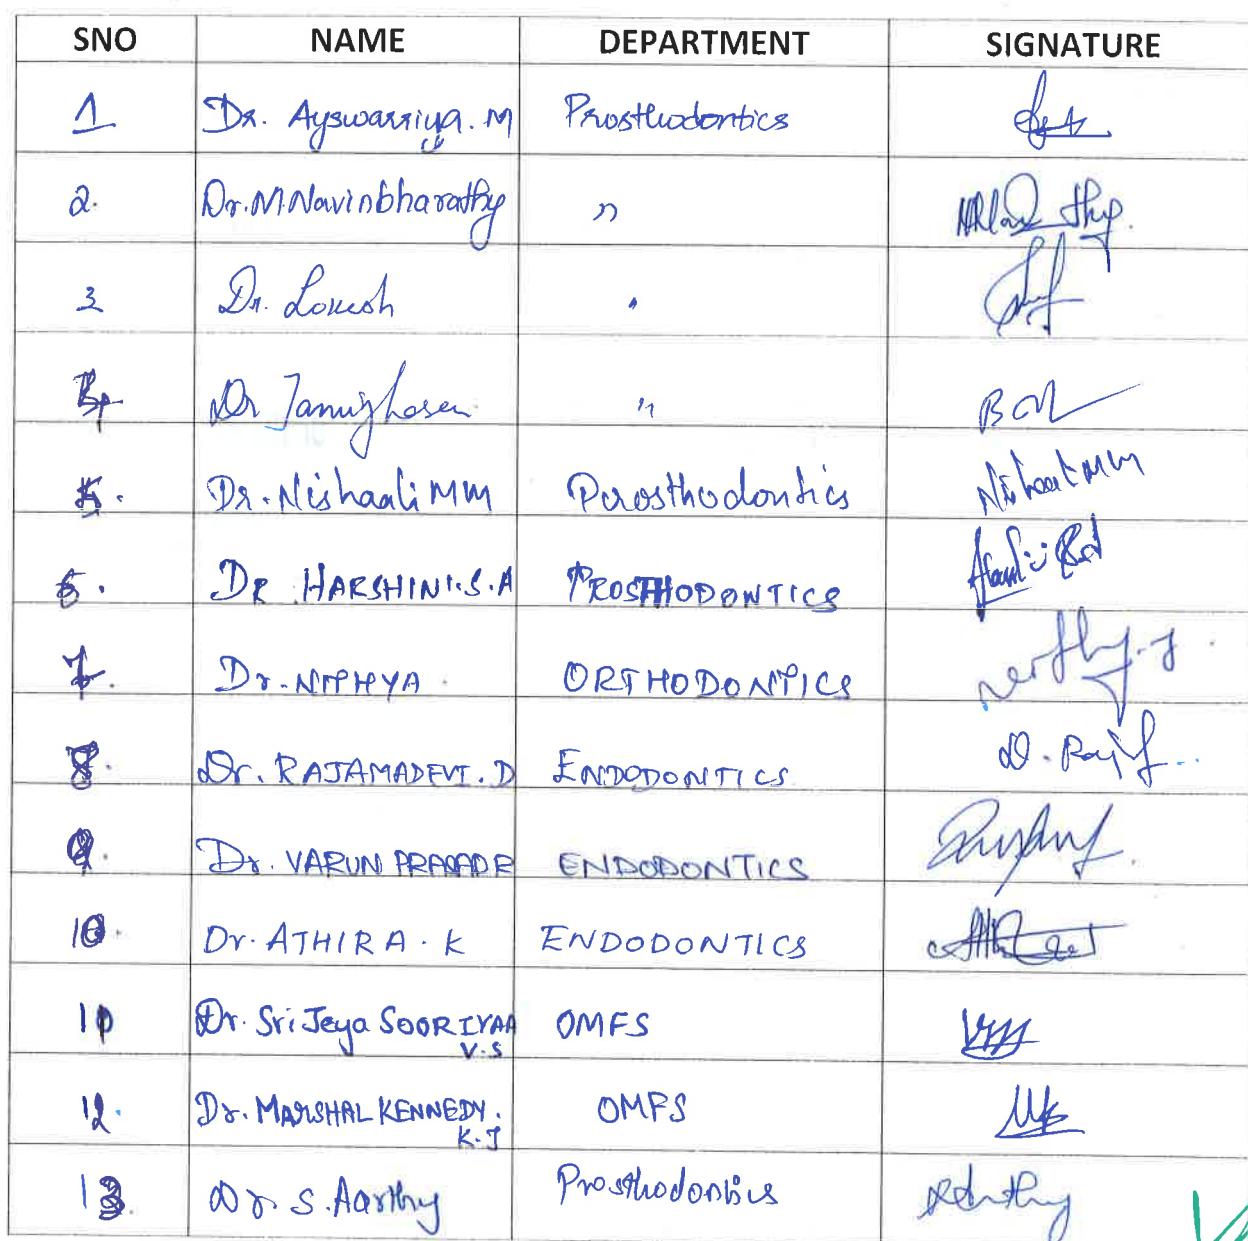 SNO NAME DEPARTMENT SIGNATURE
1 Dr. Ayswarriya. M Prosthodontics
2. Dr. M. Navinbharathy "
3 Dr. Lokesh "
4 Dr "
5. Dr. Nishaali MM Prosthodontics Nishaali MM
6. DR HARSHINI. S. A PROSTHODONTICS
7. Dr. NITHYA ORTHODONTICS
8. Dr. RAJAMADEVI. D ENDODONTICS
9. Dr. VARUN PRASAD R ENDODONTICS
10. Dr. ATHIRA. K ENDODONTICS
11 Dr. Sri Jeya SOORIYAA OMFS
V.S
12. Dr. MARSHAL KENNEDY. OMFS
K.J
13. Dr S. Aarthy Prosthodontics